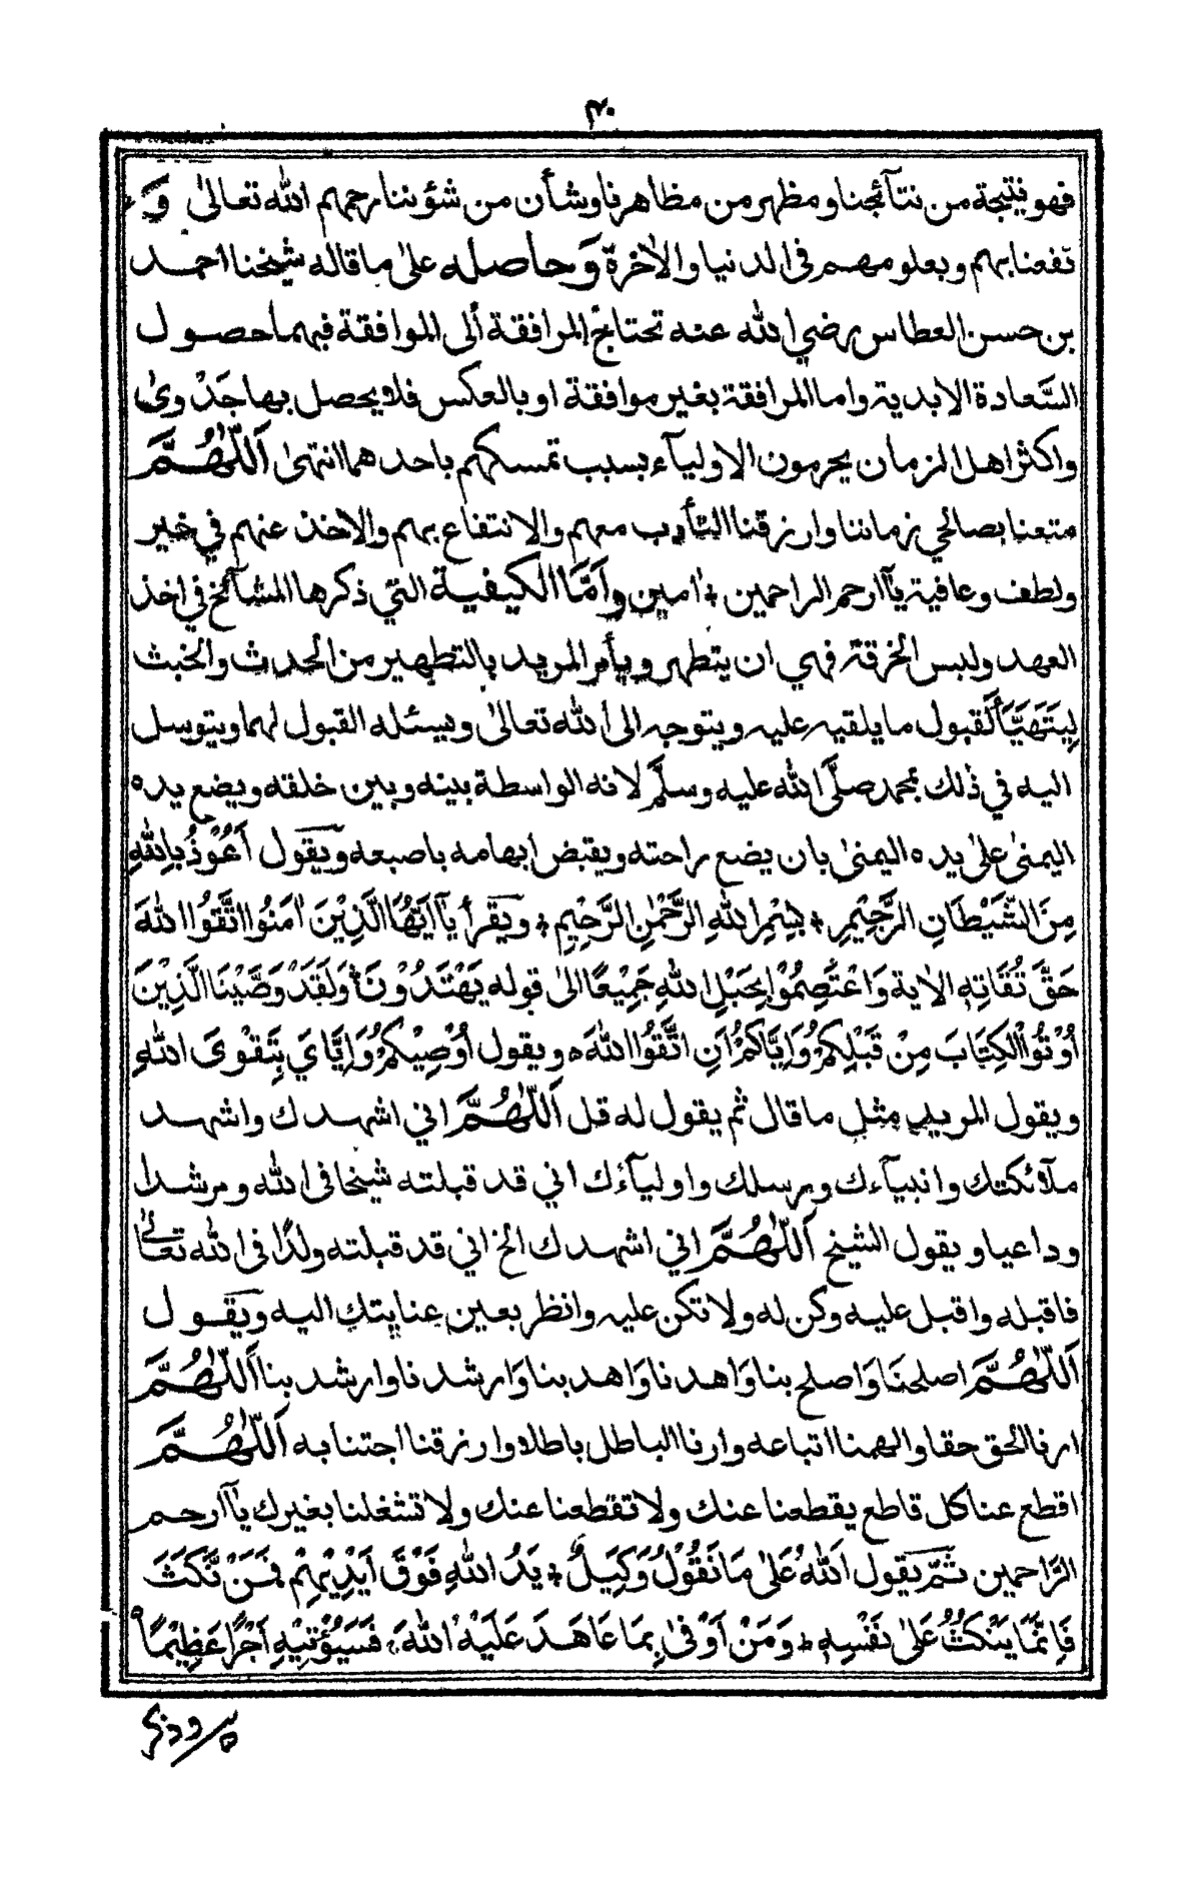 ٣٠
فهو نتيجة من نتآئجنا ومظهر من مظاهرنا وشأن من شؤننا رحمهم الله تعالىٰ وَ
نفعنا بهم وبعلومهم فى الدنيا والاٰخرة وَحاصله علىٰ ما قاله شيخنا احمد
بن حسن العطاس رضي الله عنه تحتاج المرافقة ألى الموافقة فبهما حصول
السَّعادة الابدية واما المرافقة بغير موافقة او بالعكس فلا يحصل بها جَدْوىٰ
واكثر اهل الزمان يحرمون الاوليآء بسبب تمسكهم باحدهما انتهىٰ اَللّٰهُمَّ
متعنا بصالحي زماننا وارزقنا التأدب معهم والانتفاع بهم والاخذ عنهم في خير
ولطف وعافية يآارحم الراحمين ÷ اٰمين وامَّا الكيفية التي ذكرها المشآئخ في اخذ
العهد ولبس الخرقة فهي ان يتطهر ويأمر المريد بالتطهير من الحدث والخبث
لِيتَهَيَّأَ لقبول ما يلقيه عليه ويتوجه الى الله تعالىٰ ويسئله القبول لهما ويتوسل
اليه في ذٰلك بمحمد صلَّى الله عليه وسلَّم لانه الواسطة بينه وبين خلقه ويضع يده
اليمنىٰ علىٰ يده اليمنىٰ بان يضع راحته ويقبض ابهامه باصبعه ويقول اَعُوْذُ بِاللّٰهِ
مِنَ الشَّيْطَانِ الرَّجِيْمِ ÷ بِسْمِ اللهِ الرَّحْمٰنِ الرَّحِيْمِ ÷ ويقرأ يآاَيَّهَا الَّذِيْنَ اٰمَنُوا اتَّقُوا اللهَ
حَقَّ تُقَاتِهٖ الاٰية وَاعْتَصِمُوْا بِحَبْلِ اللهِ جَمِيْعًا الىٰ قوله يَهْتَدُوْنَ وَلَقَدْ وَصَّيْنَا الَّذِيْنَ
اُوْتُوْا الْكِتَابَ مِنْ قَبْلِكُمْ وَاِيَّاكُمْ اَنِ اتَّقُوا اللهَ ه ويقول اُوْصِيْكُمْ وَاِيَّايَ بِتَقْوَى اللهِ
ويقول المريد مثل ما قال ثم يقول له قل اَللّٰهُمَّ اني اشهدك واشهد
ملآئكتك وانبيآءك ورسلك واوليآءك اني قد قبلته شيخا فى الله ومرشدا
وداعيا ويقول الشيخ اَللّٰهُمَّ اني اشهدك الخ اني قد قبلته ولدًا فى الله تعالىٰ
فاقبله واقبل عليه وكن له ولا تكن عليه وانظر بعين عنايتك اليه ويقول
اَللّٰهُمَّ اصلحنَا وَاصلح بنا وَاهدنا وَاهد بنا وَارشدنا وارشد بنا اَللّٰهُمَّ
ارنا الحق حقا والهمنا اتباعه وارنا الباطل باطلا وارزقنا اجتنابه اَللّٰهُمَّ
اقطع عنا كل قاطع يقطعنا عنك ولا تقطعنا عنك ولا تشغلنا بغيرك يآارحم
الرَّاحمين ثمّ يقول اَللهُ عَلىٰ مَا نَقُوْلُ وَكِيْلٌ ÷ يَدُ اللهِ فَوْقَ اَيْدِيْهِمْ فَمَنْ نَّكَثَ
فَاِنَّمَا يَنْكُثُ عَلىٰ نَفْسِهٖ ÷ وَمَنْ اَوْفىٰ بِمَا عَاهَدَ عَلَيْهُ اللهَ فَسَيُؤْتِيْهِ اَجْرًا عَظِيْمًا ه